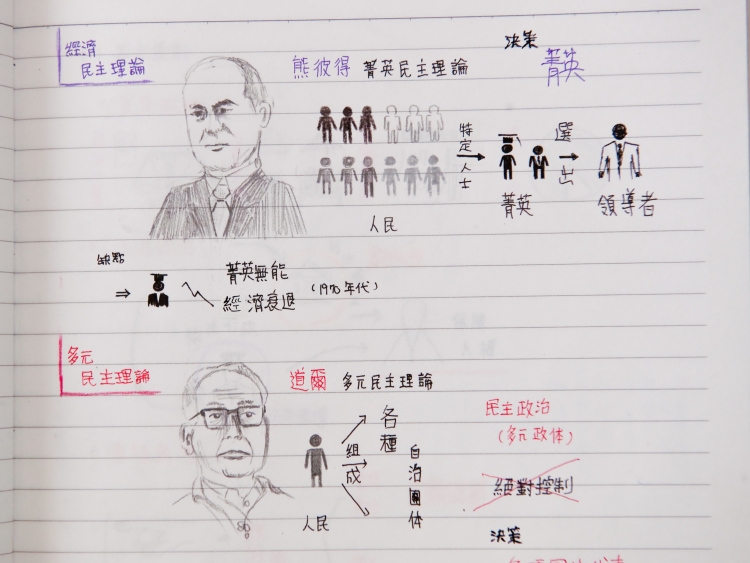 經濟
民主理論
熊彼得 菁英民主理論
決策
菁英
人民
特定人士
菁英
選出
領導者
缺點
⇒
菁英無能
經濟衰退 (1970年代)
多元
民主理論
道爾 多元民主理論
人民
組成
各種
自治團体
民主政治
(多元政体)
絕對控制
決策